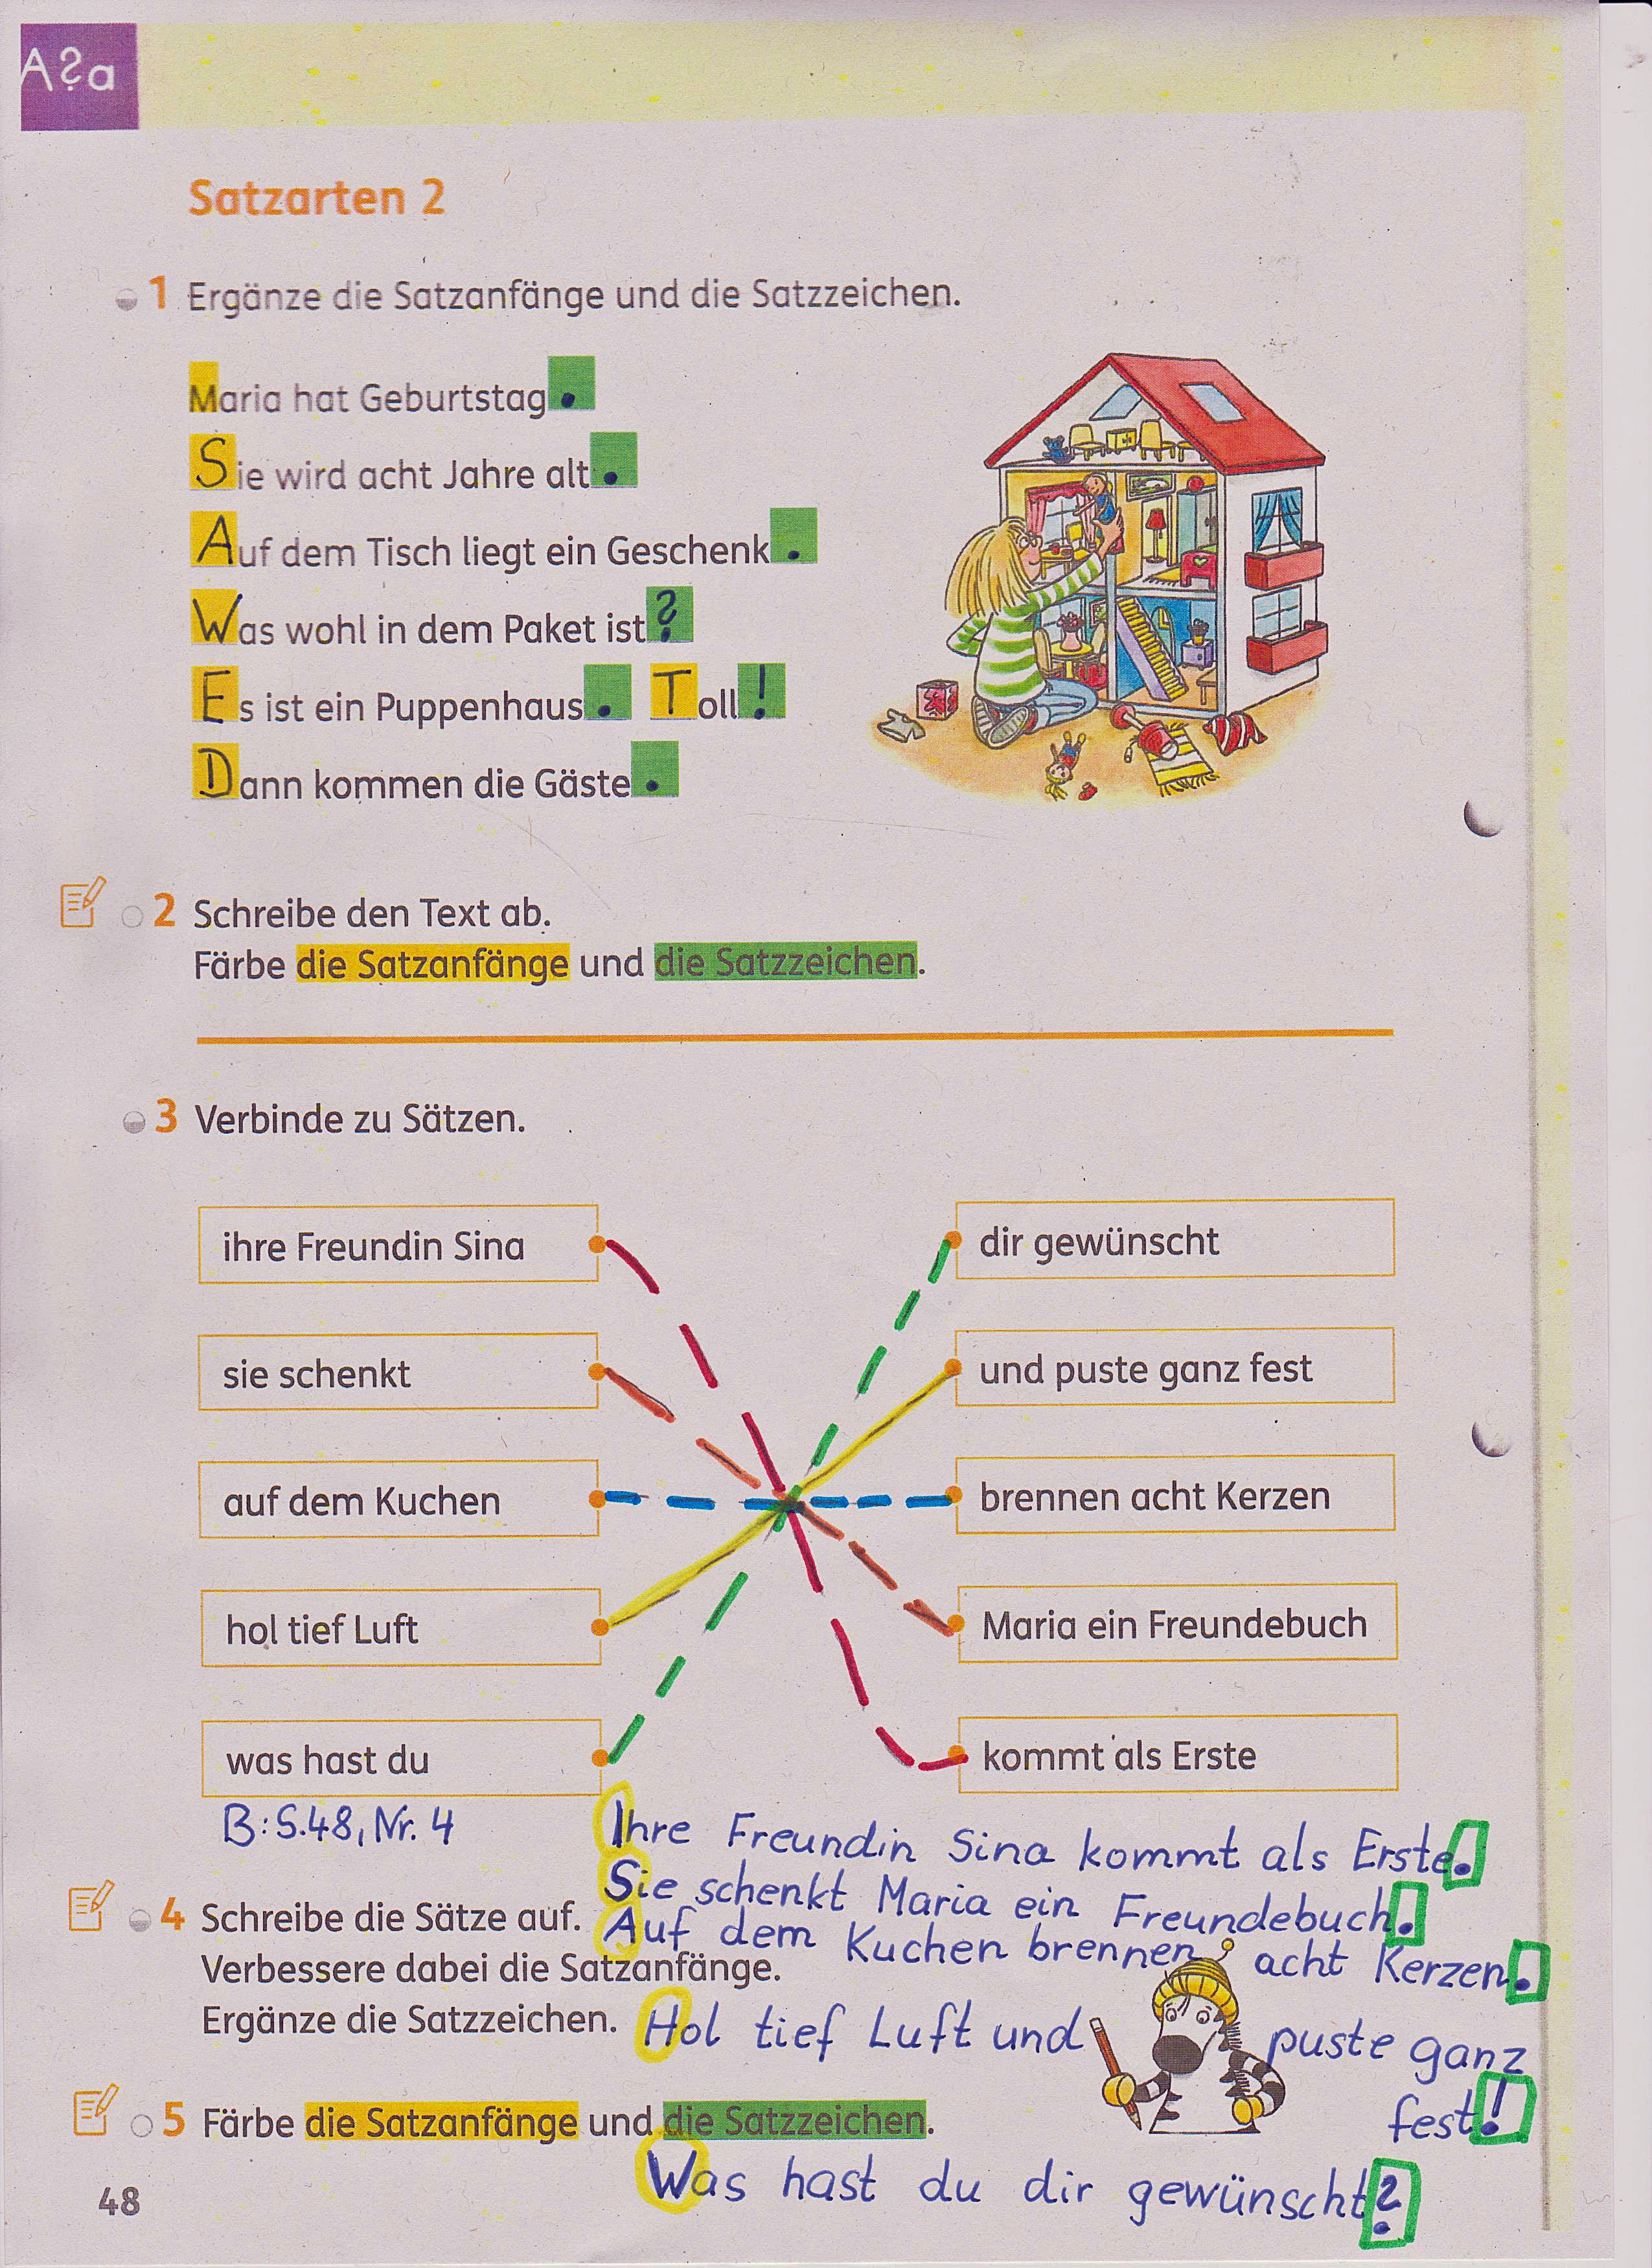 A?a
Satzarten 2
1 Ergänze die Satzanfänge und die Satzzeichen.
Maria hat Geburtstag.
Sie wird acht Jahre alt.
Auf dem Tisch liegt ein Geschenk.
Was wohl in dem Paket ist?
Es ist ein Puppenhaus. Toll!
Dann kommen die Gäste.
2 Schreibe den Text ab.
Färbe die Satzanfänge und die Satzzeichen.
3 Verbinde zu Sätzen.
ihre Freundin Sina
dir gewünscht
sie schenkt
und puste ganz fest
auf dem Kuchen
brennen acht Kerzen
hol tief Luft
Maria ein Freundebuch
was hast du
kommt als Erste
B: S.48, Nr. 4
Ihre Freundin Sina kommt als Erste.
Sie schenkt Maria ein Freundebuch.
Auf dem Kuchen brennen acht Kerzen.
4 Schreibe die Sätze auf.
Verbessere dabei die Satzanfänge.
Ergänze die Satzzeichen.
Hol tief Luft und puste ganz
fest!
5 Färbe die Satzanfänge und die Satzzeichen.
Was hast du dir gewünscht?
48